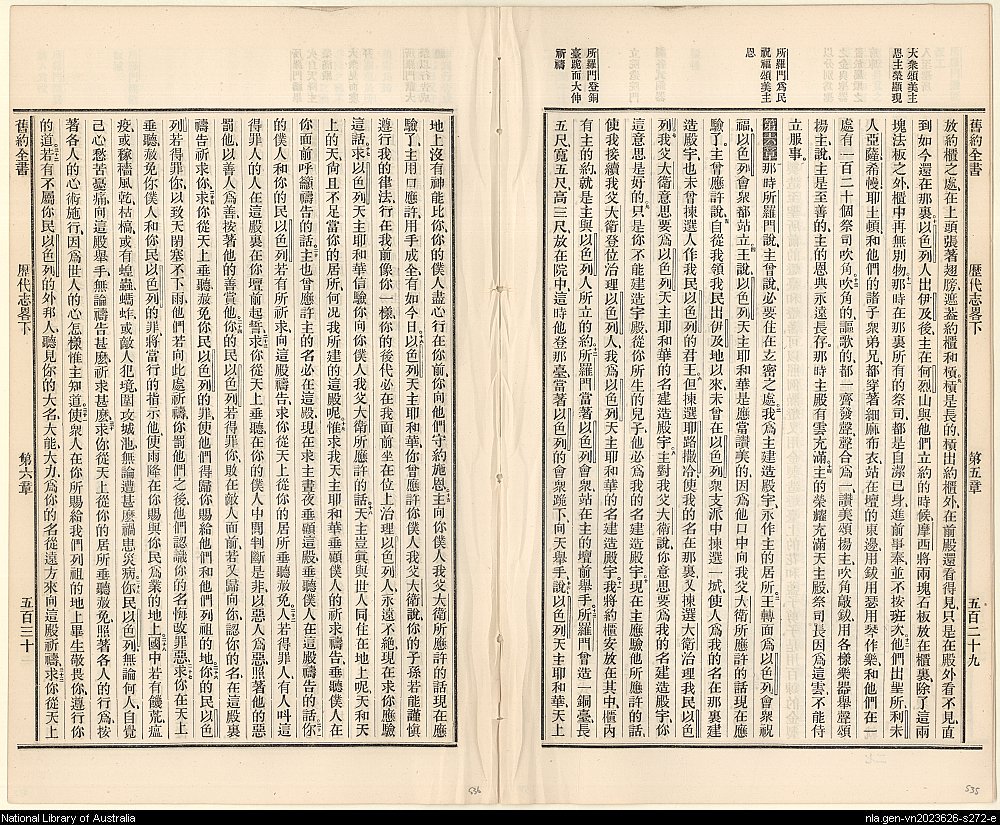 舊約全書
歷代志畧下
第五章
五百二十九
大衆頌美主
恩主榮顯現
所羅門爲民
祝福頌美主
恩
所羅門登銅
臺跪而大伸
祈禱
放約櫃之處、在上頭張著翅膀遮蓋約櫃和槓、槓是長的、槓出約櫃外、在前殿還看得見、只是在殿外看不見、直
到如今還在那裏、以色列人出伊及後、主在何烈山與他們立約的時候、摩西將兩塊石板放在櫃裏、除了這兩
塊法板之外、櫃中再無別物、那時在那裏所有的祭司、都是自潔已身、進前事奉、並不按班次、他們出聖所、利未
人亞薩希幔耶土頓、和他們的諸子衆弟兄、都穿著細麻布衣、站在壇的東邊、用鈸用瑟用琴作樂、和他們在一
處有一百二十個祭司吹角、吹角的謳歌的都一齊發聲、聲合爲一、讚美頌揚主、吹角敲鈸用各樣樂器、舉聲頌
揚主說、主是至善的、主的恩典永遠長存、那時主殿有雲充滿、主的榮耀充滿天主殿、祭司長因爲這雲不能侍
立服事、
第六章那時所羅門說、主曾說、必要住在玄密之處、我爲主建造殿宇、永作主的居所、王轉面爲以色列會衆祝
福、以色列會衆都站立、王說、以色列天主耶和華是應當讚美的、因爲他口中向我父大衛所應許的話、現在應
驗了、主曾應許說、自從我領我民出伊及地以來、未曾在以色列衆支派中揀選一城、使人爲我的名在那裏建
造殿宇、也未曾揀選人作我民以色列的君王、但揀選耶路撒冷使我的名在那裏、又揀選大衛治理我民以色
列、我父大衛意思要爲以色列天主耶和華的名建造殿宇、主對我父大衛說、你意思要爲我的名建造殿宇、你
這意思是好的、只是你不能建造宇殿、從你所生的兒子、他必爲我的名建造殿宇、現在主應驗他所應許的話、
使我接續我父大衛登位、治理以色列、爲以色列天主耶和華的名建造殿宇、我將約櫃安放在其中、櫃內
有主的約、就是主與以色列人所立的約、所羅門當著以色列的會衆、站在主的壇前舉手、所羅門曾造一銅臺、長
五尺、寬五尺、高三尺、放在院中、這時他登那臺、當著以色列的會衆跪下、向天舉手、說、以色列天主耶和華、天上
地上沒有神能比你、你的僕人盡心行在你前、你向他們守約施恩、主向你僕人我父大衛所應許的話、現在應
驗了、主用口應許、用手成全、有如今日、以色列天主耶和華、你曾應許你僕人我父大衛、說、你的子孫若能謹愼
遵行我的律法、行在我前像你一樣、你的後代必在我面前坐在位上治理以色列人、永遠不絕、現在求你應驗
這話、求以色列天主耶和華信驗你向你僕人我父大衛所應許的話、天主豈眞與世人同住在地上呢、天和天
上的天、尙且不足當你的居所、何况我所建的這殿呢、惟求我天主耶和華垂顧僕人的祈求禱告、垂聽僕人在
你面前呼籲禱告的話、主也曾應許主的名必在這殿、現在求主晝夜垂顧這殿、垂聽僕人在這殿禱告的話、你
的僕人和你的民以色列、若有所祈求、向這殿禱告、求你從天上、從你的居所垂聽赦免、人若得罪人、有人叫這
得罪人的人、在這殿裏在你壇前起誓、求你從天上垂聽、在你的僕人中間判斷是非、以惡人爲惡、照著他的惡
罰他、以善人爲善、按著他的善賞他、你的民以色列若得罪你、敗在敵人面前、若又歸向你、認你的名、在這殿裏
禱告祈求你、求你從天上垂聽、赦免你民以色列的罪、使他們得歸你賜給他們和他們列祖的地、你的民以色
列若得罪你、以致天閉塞不下雨、他們若向此處祈禱、你罰他們之後、他們認識你的名、悔改罪惡、求你在天上
垂聽、赦免你僕人和你民以色列的罪、將當行的指示他、使雨降在你賜與你民爲業的地上、國中若有饑荒、瘟
疫、或稼穡風乾枯槁、或有蝗蟲螞蚱、或敵人犯境圍攻城池、無論遭甚麽禍患災病、你民以色列無論何人、自覺
己心愁苦憂痛、向這殿舉手、無論禱告甚麽、祈求甚麽、求你從天上、從你的居所垂聽赦免、照著各人的行爲、按
著各人的心術施行、因爲世人的心怎樣、惟主知道、使衆人在你所賜給我們列祖的地上、畢生敬畏你、遵行你
的道、若有不屬你民以色列的外邦人、聽見你的大名大能大力、爲你的名從遠方來向這殿祈禱、求你從天上
舊約全書
歷代志畧下
第六章
五百三十
536
535
National Library of Australia
nla.gen-vn2023626-s272-e